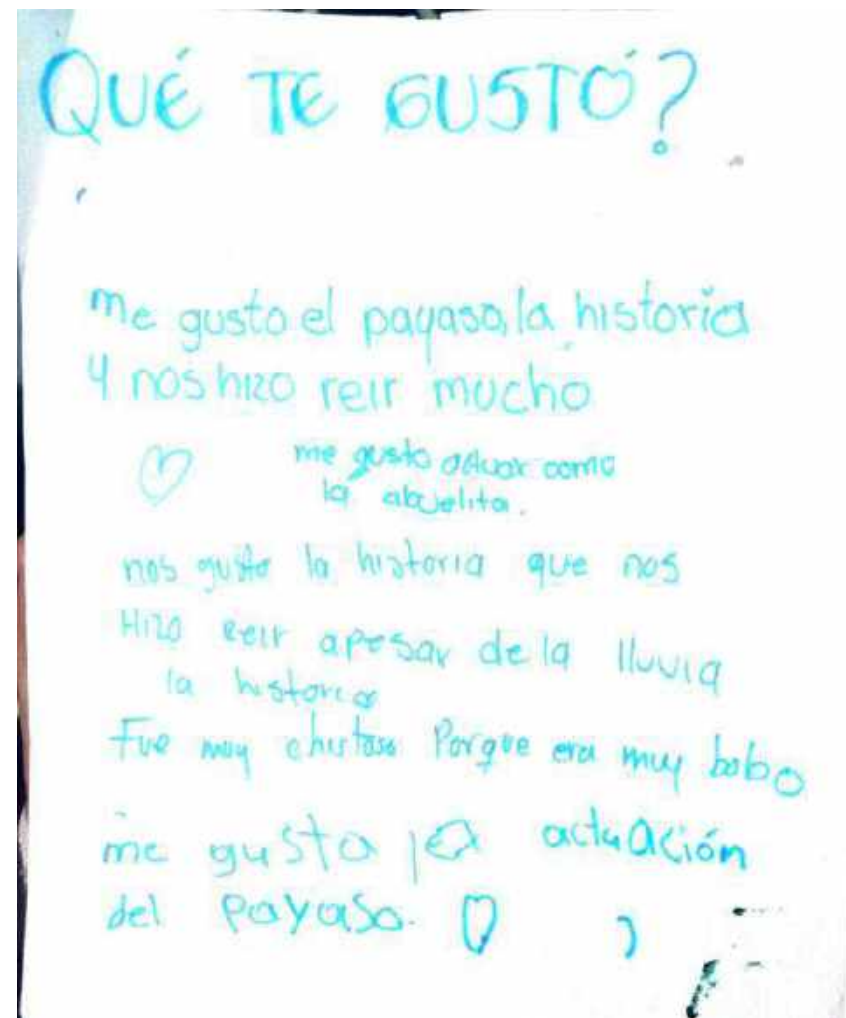 QUÉ TE GUSTÓ?
me gusto el payaso, la historia
y nos hizo reir mucho
me gusto actuar como
la abuelita.
nos gusto la historia que nos
Hizo reir apesar de la lluvia
la historia
Fue muy chistoso Porque era muy bobo
me gusto la actuación
del payaso.